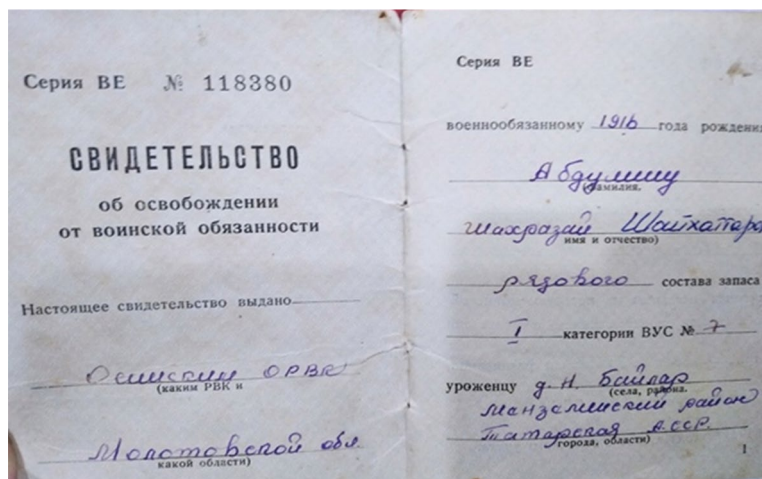 Серия ВЕ № 118380
СВИДЕТЕЛЬСТВО
об освобождении
от воинской обязанности
Настоящее свидетельство выдано
Осинским ОРВК
(каким РВК и
Молотовской обл
какой области)
Серия ВЕ
военнообязанному 1916 года рождени
Абдулину
(фамилия,
имя и отчество)
рядового состава запаса
I категории ВУС № 7
уроженцу д. Н. Байлар
(села, района.
Манзелинский район
Татарская АССР.
города, области)
1